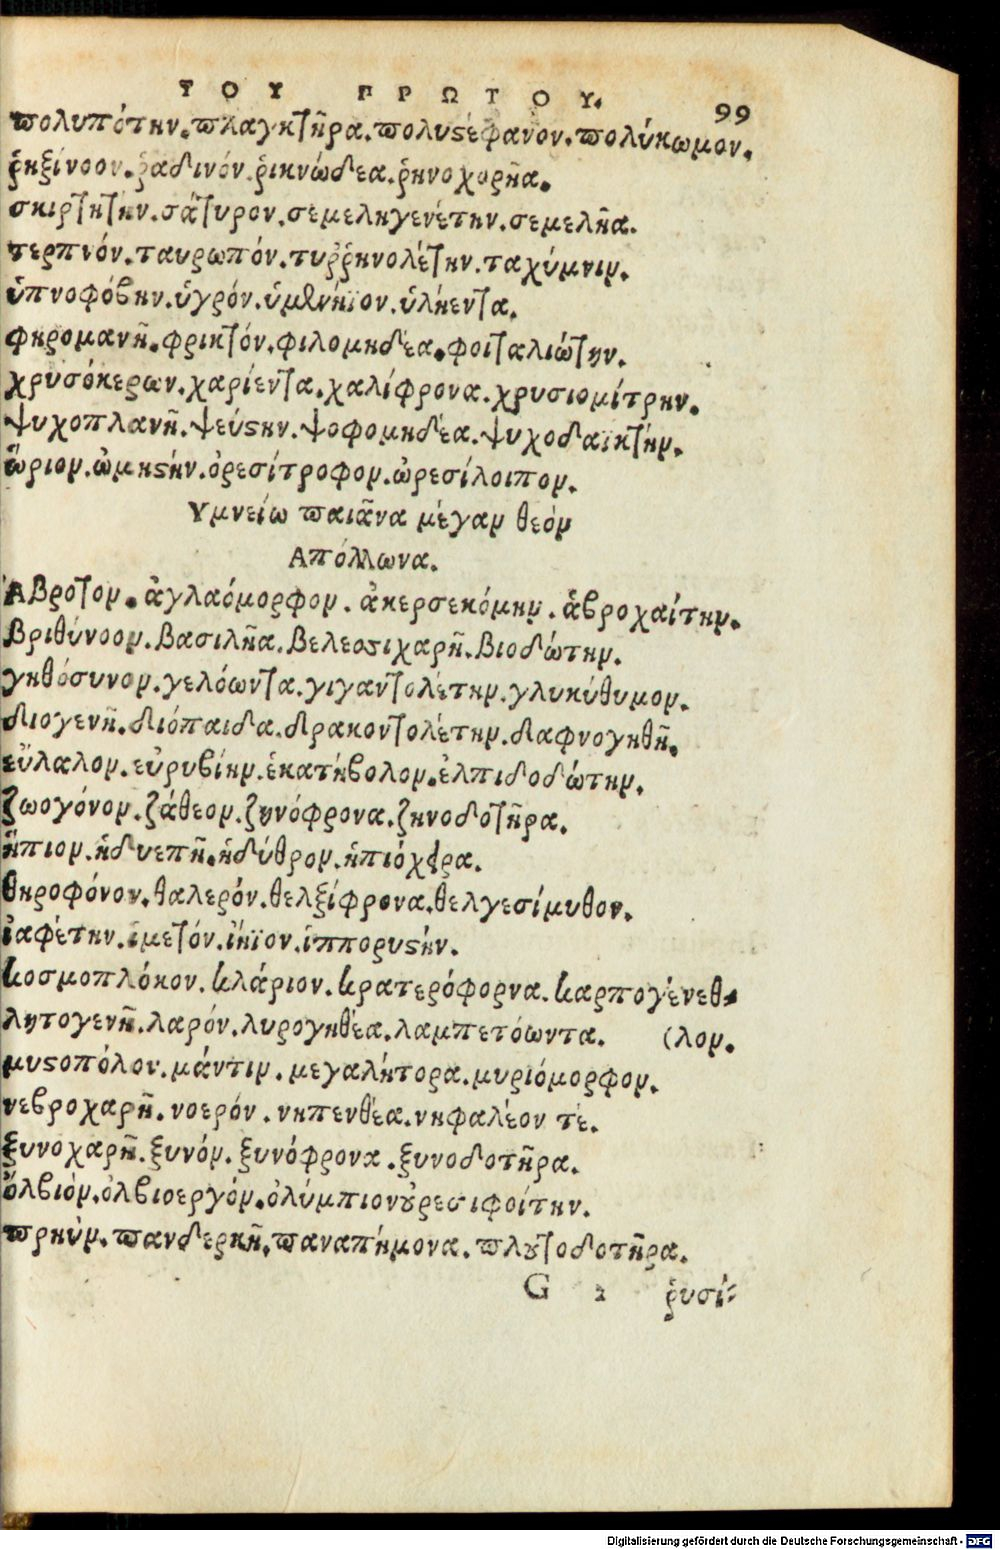 ΤΟΥ ΠΡΩΤΟΥ. 99
πολυπότην. πλαγκτῆρα. πολυστέφανον. πολύκωμον.
ῥηξίνοον. ῥαδινόν. ῥικνώδεα. ῥηνοχορῆα.
σκιρτητὴν. σάτυρον. σεμεληγενέτην. σεμελῆα.
τερπνόν. ταυρωπόν. τυῤῥηνολέτην. ταχύμνιν.
ὑπνοφόβην. ὑγρόν. ὑμενήϊον. ὑλήεντα.
φηρομανῆ. φρικτόν. φιλομηδέα. φοιταλιώτην.
χρυσόκερων. χαρίεντα. χαλίφρονα. χρυσιομίτρην.
ψυχοπλανῆ. ψεύστην. ψοφομηδέα. ψυχοδαϊκτήν.
ὥριον. ὠμηστήν. ὀρεσίτροφον. ὠρεσίλοιπον.
Υμνείω παιᾶνα μέγαν θεόν
Απόλλωνα.
Ἁβροτον. ἀγλαόμορφον. ἀκερσεκόμην. ἁβροχαίτην.
βριθύνοον. βασιλῆα. βελεοστιχαρῆ. βιοδώτην.
γηθόσυνον. γελόωντα. γιγαντολέτην. γλυκύθυμον.
διογενῆ. διόπαιδα. δρακοντολέτην. δαφνογηθῆ.
εὔλαλον. εὐρυβίην. ἑκατήβολον. ἐλπιδοδώτην.
ζωογόνον. ζάθεον. ζηνόφρονα. ζηνοδοτῆρα.
ἤπιον. ἡδυεπῆ. ἡδύθρον. ἠπιόχειρα.
θηροφόνον. θαλερόν. θελξίφρονα. θελγεσίμυθον.
ἰαφέτην. ἱμετόν. ἰήϊον. ἱπποςυστήν.
κοσμοπλόκον. κλάριον. κρατερόφορνα. καρπογένεθ-
λητογενῆ. λαρόν. λυρογηθέα. λαμπετόωντα. (λον.
μυστοπόλον. μάντιν. μεγαλήτορα. μυριόμορφον.
νεβροχαρῆ. νοερόν. νηπενθέα. νηφαλέον τέ.
ξυνοχαρῆ. ξυνόν. ξυνόφρονα. ξυνοδοτῆρα.
ὄλβιόν. ὀλβιοεργόν. ὀλύμπιον οὐρεσιφοίτην.
πρηΰν. πανδερκῆ. παναπήμονα. πλουτοδοτῆρα.
G 2 ῥυσί-
Digitalisierung gefördert durch die Deutsche Forschungsgemeinschaft - DFG